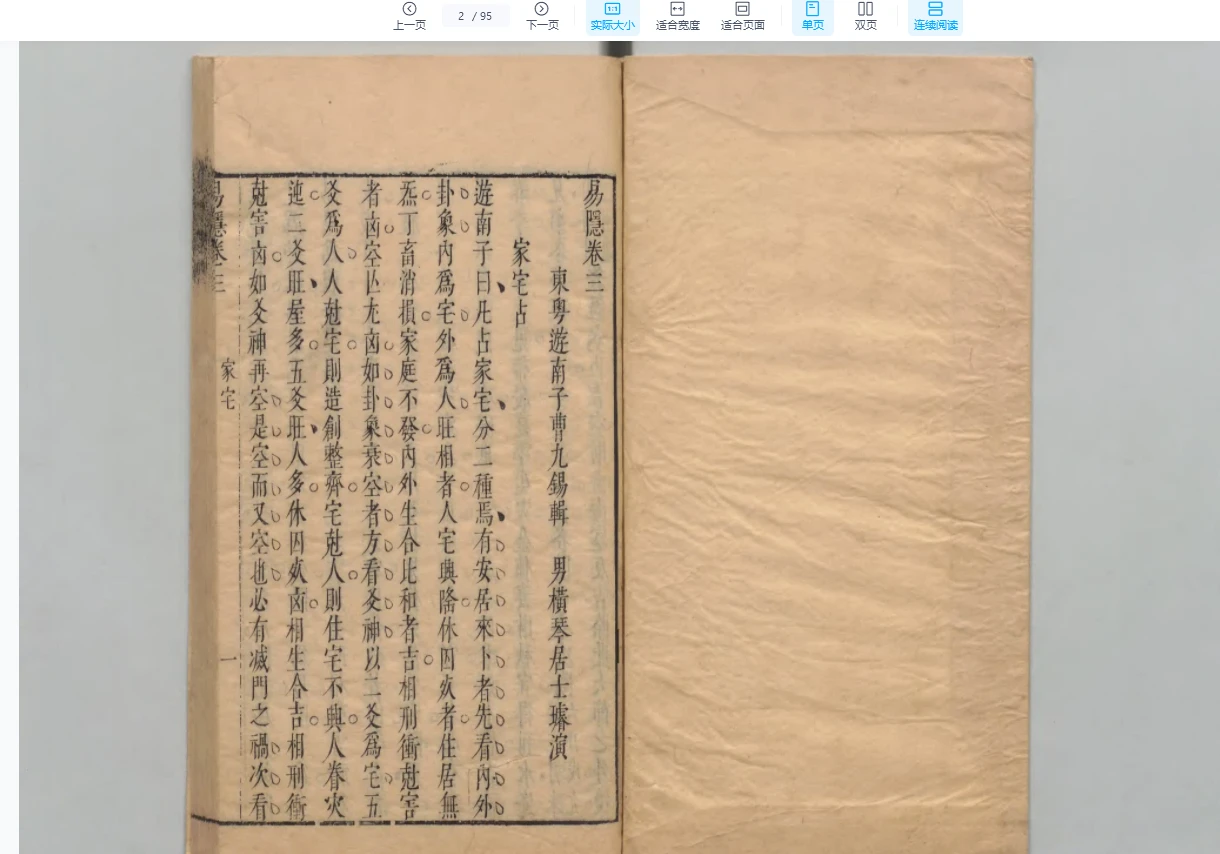 上一页
2 / 95
下一页
1:1
实际大小
适合宽度
适合页面
单页
双页
连续阅读
易隱卷三
東粤遊南子曹九錫輯 男橫琴居士璿演
家宅占
遊南子曰凡占家宅分二種焉有安居來卜者先看內外
卦象內爲宅外爲人旺相者人宅興隆休囚㷀者住居無
炁丁畜消損家庭不發內外生合比和者吉相刑衝尅害
者凶空亡尤凶如卦象衰空者方看爻神以二爻爲宅五
爻爲人人尅宅則造創整齊宅尅人則住宅不興人眷灾
迍二爻旺屋多五爻旺人多休囚凶相生合吉相刑衝
尅害凶如爻神再空是空而又空也必有滅門之禍次看
易隱卷三
家宅
一